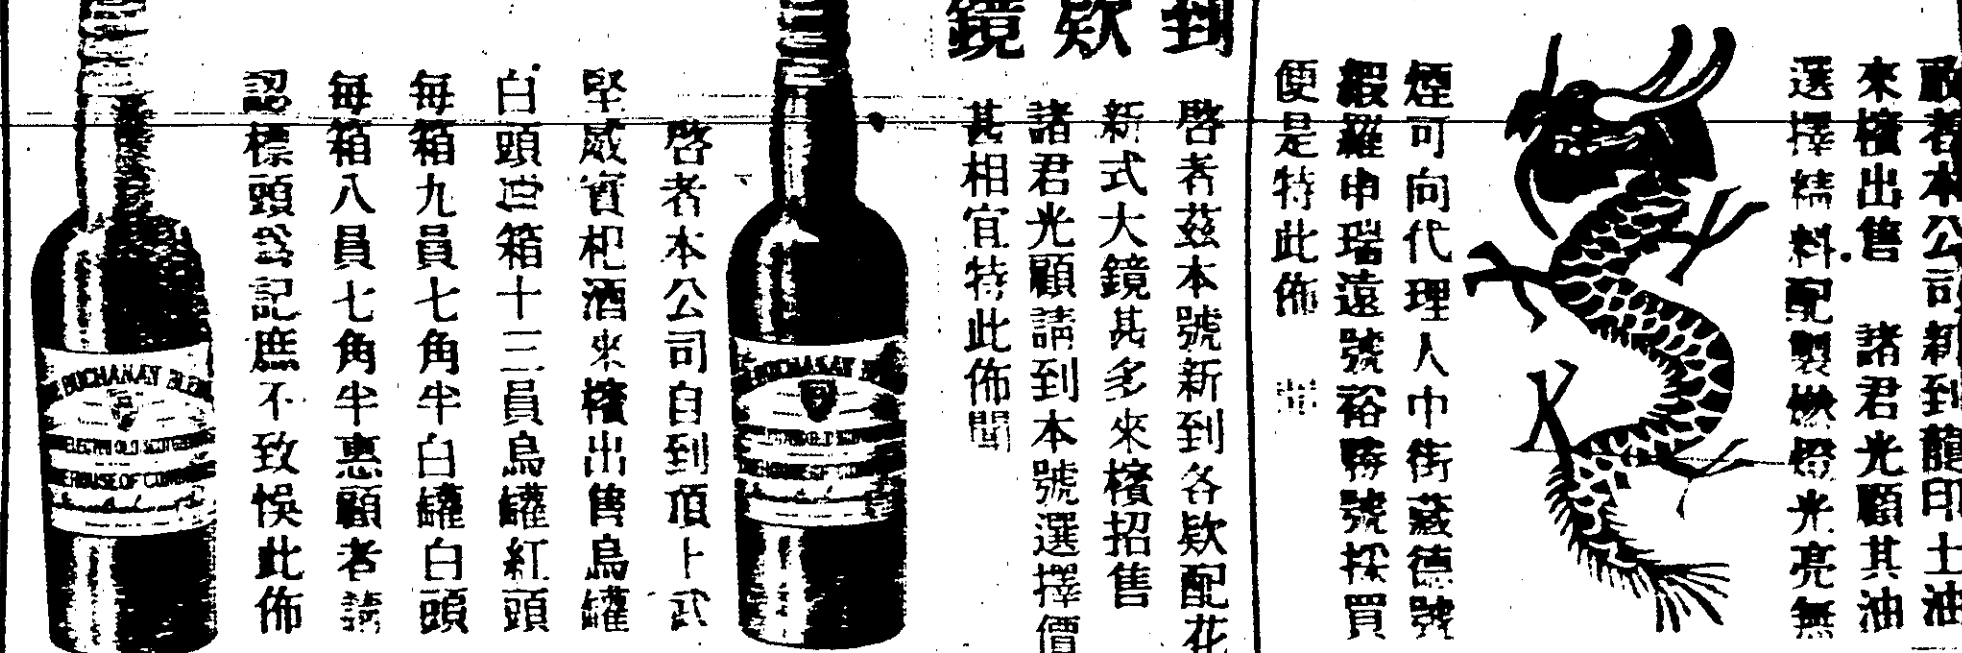 啟者本公司新到龍印土油
來檳出售 諸君光顧其油
選擇精料配製燃燈光亮無
煙可向代理人中街藏德號
緞羅申瑞遠號裕勝號採買
便是特此佈
到欵鏡
啓者茲本號新到各欵配花
新式大鏡甚多來檳招售
諸君光顧請到本號選擇價
甚相宜特此佈聞
啓者本公司自到頂上
堅威實杞酒來檳出售烏罐
白頭箱十三員烏罐紅頭
每箱九員七角半白罐白頭
每箱八員七角半惠顧者請
認標頭為記庶不致悞此佈
BUCHANAN BLEN
SELECTED OLD SCOTCH
HOUSE OF COMM
BUCHANAN B
HOUSE OF COM